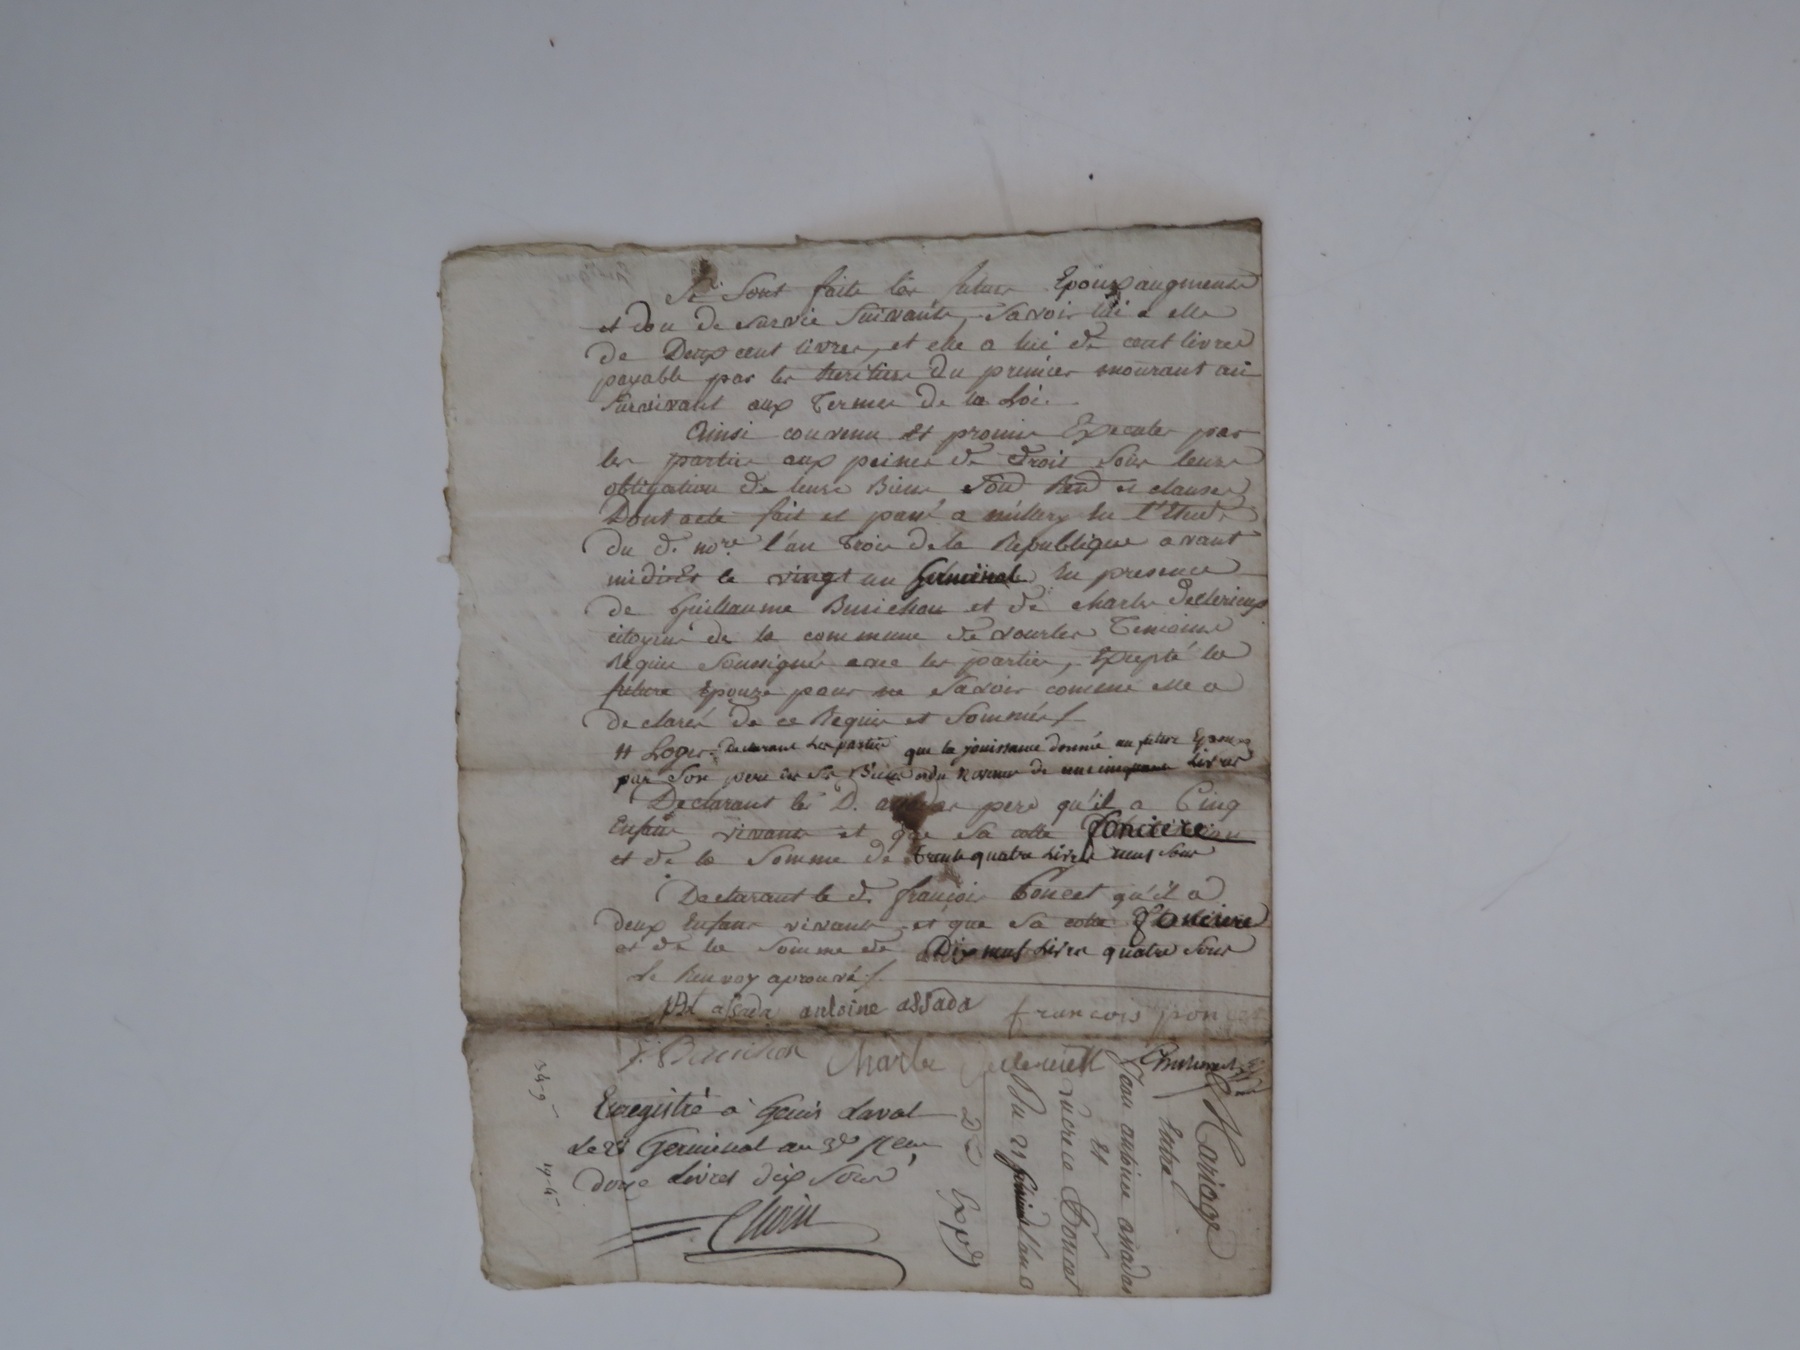 Se sont faits les futurs Epoux augment
et don de survie suivants, Savoir lui a elle
de Deux cent livres, et elle a lui de cent livres
payable par les heritiers du premier mourant au
survivant aux Termes de la Loi.
Ainsi convenu et promis Executer par
les parties aux peines de droit sous leurs
obligation de leurs Biens et clauses
Dont acte fait et passé a millery En l'Etude
du d. nore l'an Trois de la Republique avant
midi et le vingt un Germinal En presence
de Guillaume Benichon et de Charles
citoyens de la commune de vourles Temoins
Requis soussignés avec les parties, Excepté la
future Epouze pour ne savoir comme elle a
declaré de ce Requise et sommée /
# Loger. declarant les parties que la jouissance donnée au future Epoux
par son pere de ses Biens du Revenu de livres
Declarant le D. pere qu'il a Cinq
Enfans vivants et que sa cotte fonciere
et de la somme de trente quatre Livres neuf sous
Declarant le d. françois Poncet qu'il a
deux Enfans vivants et que sa cotte fonciere
et de la somme de Dix neuf Livres quatre sous
Le Renvoy aprouvé /
assada antoine assada francois poncet
Benichon Charle
Enregistré à Genis Laval
Le 28 Germinal an 3e Reçu
douze Livres dix sous
Mariage
Entre
Jean antoine assadas
Et
Lucrece Poncet
Du 21 germinal l'an 3
2e Expon
34-9
19-4